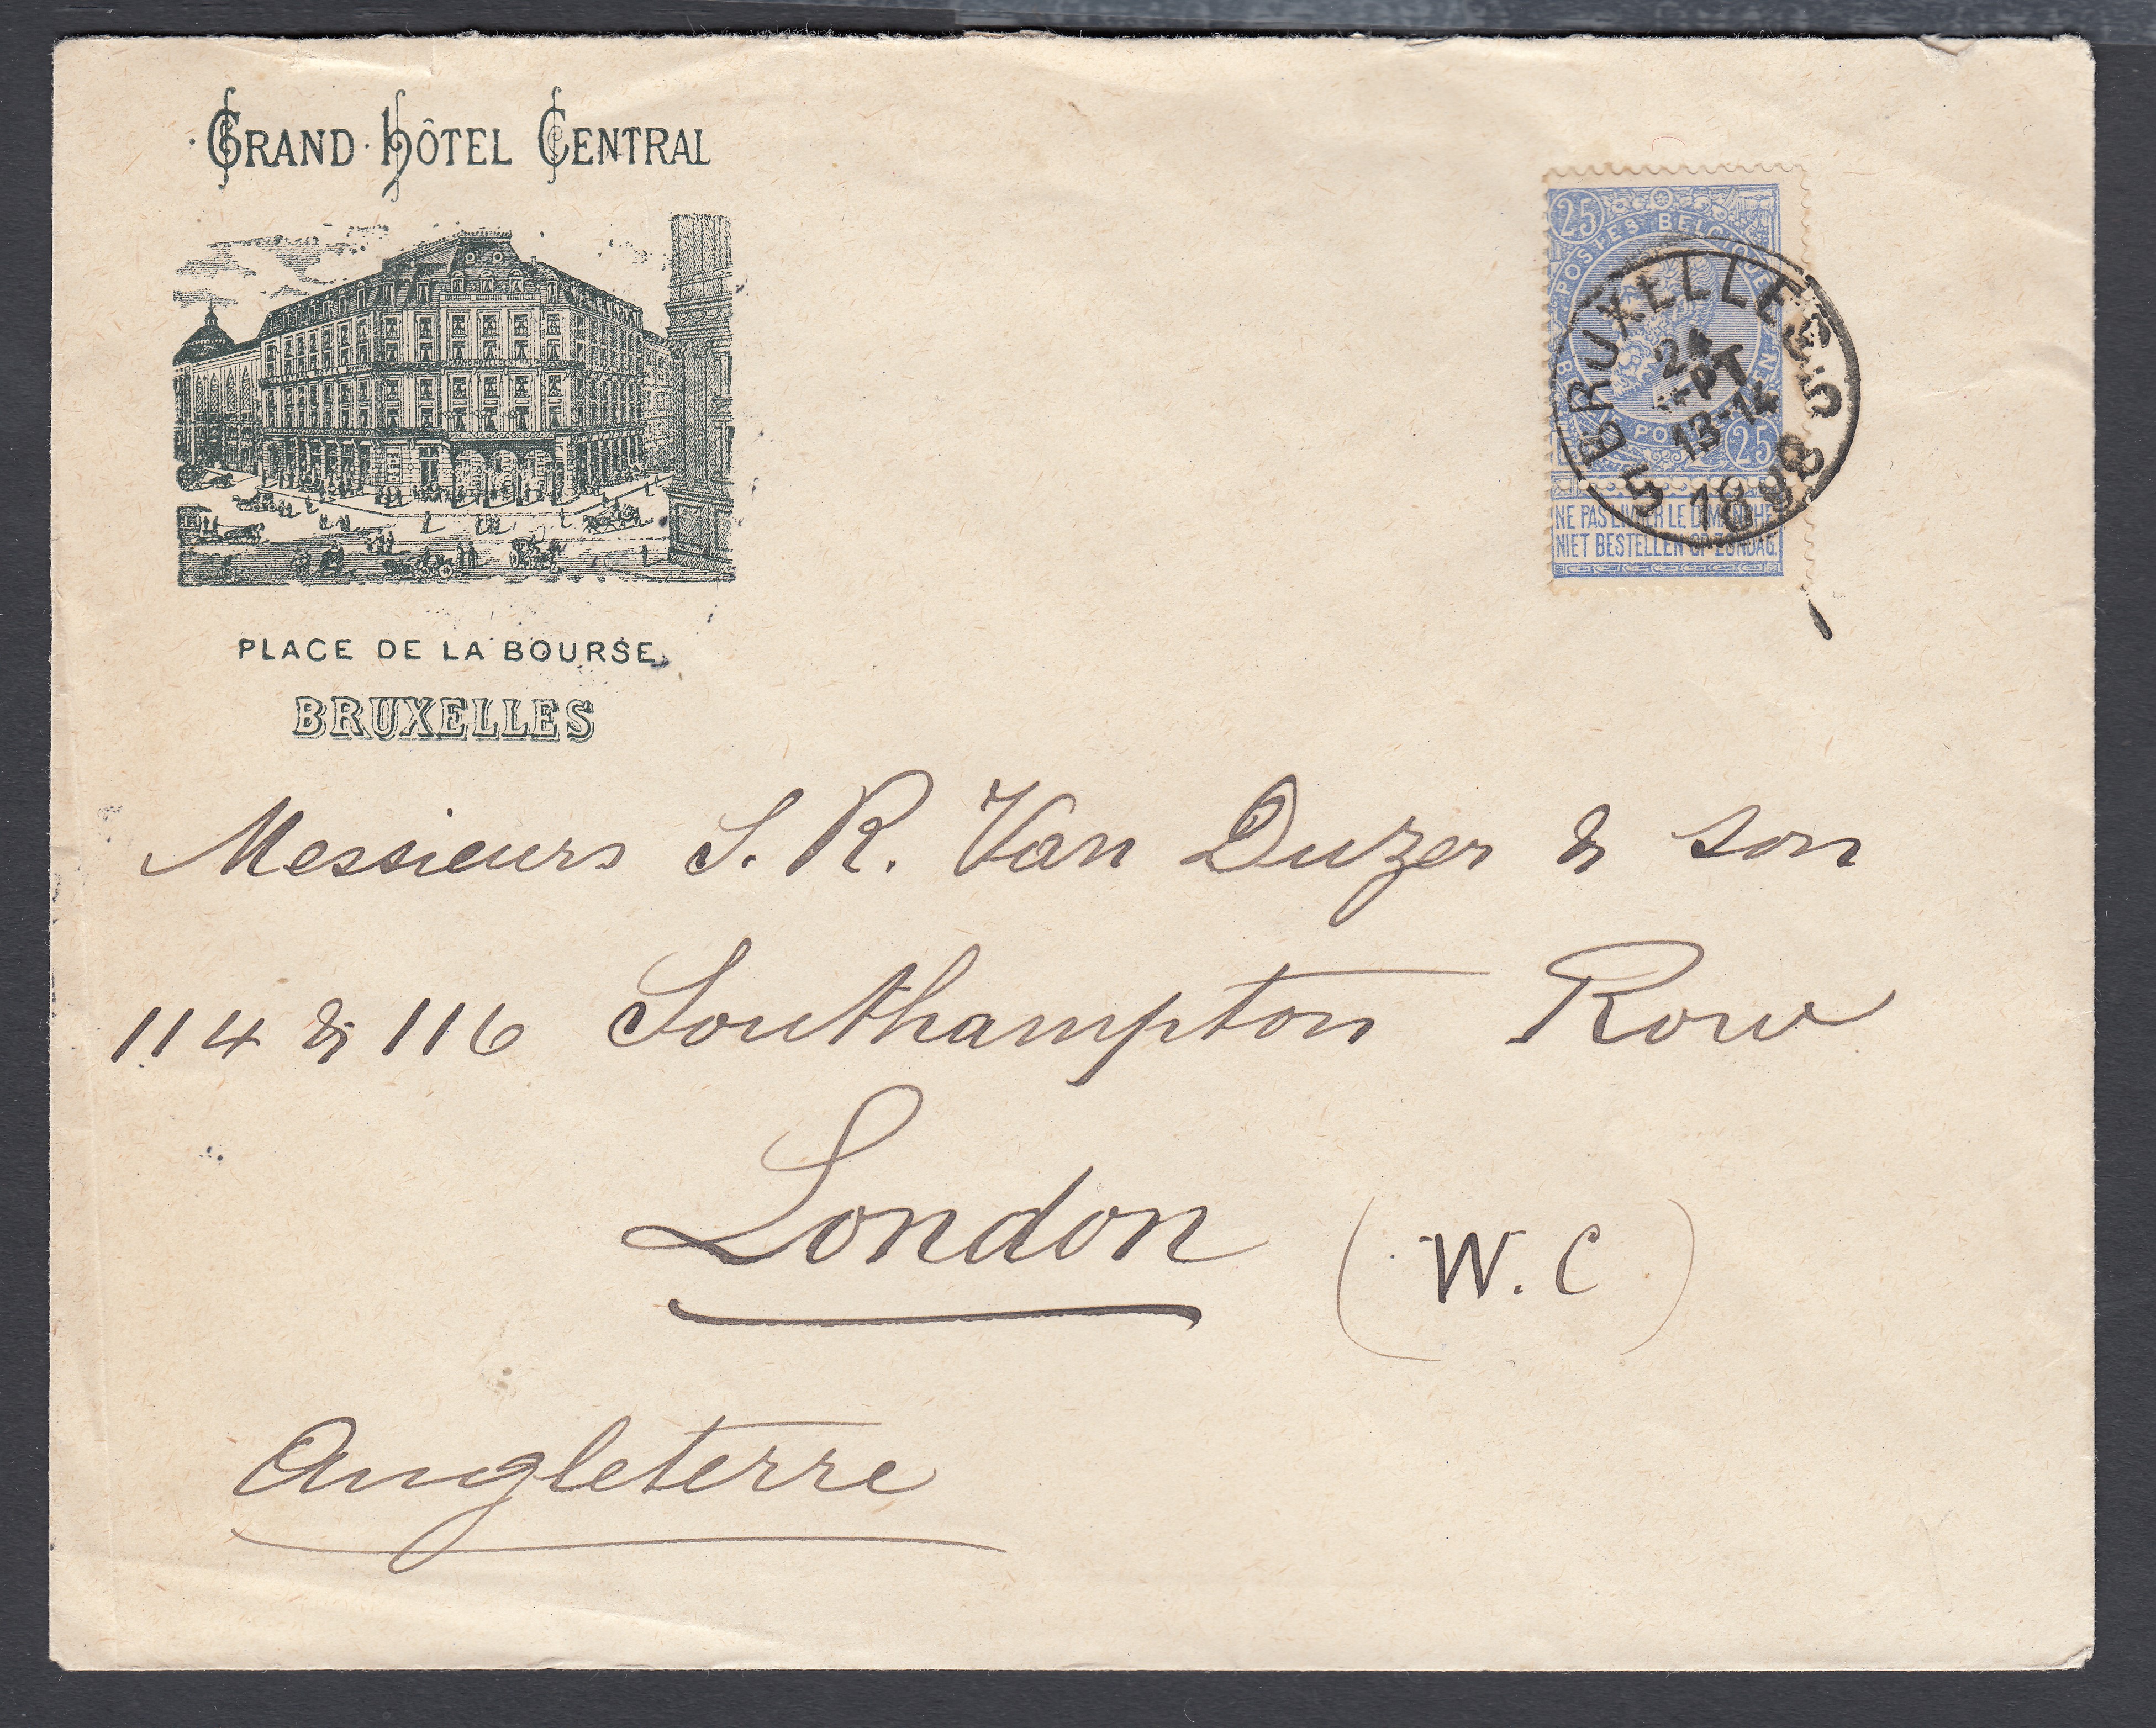 GRAND HÔTEL CENTRAL
PLACE DE LA BOURSE
BRUXELLES
25
POSTES BELGIQUE
25
NE PAS LIVRER LE DIMANCHE
NIET BESTELLEN OP ZONDAG
5 BRUXELLES 5
24
SEPT
13-14
1898
Messieurs S. R. Van Duzer & son
114 & 116 Southampton Row
London (W.C)
Angleterre